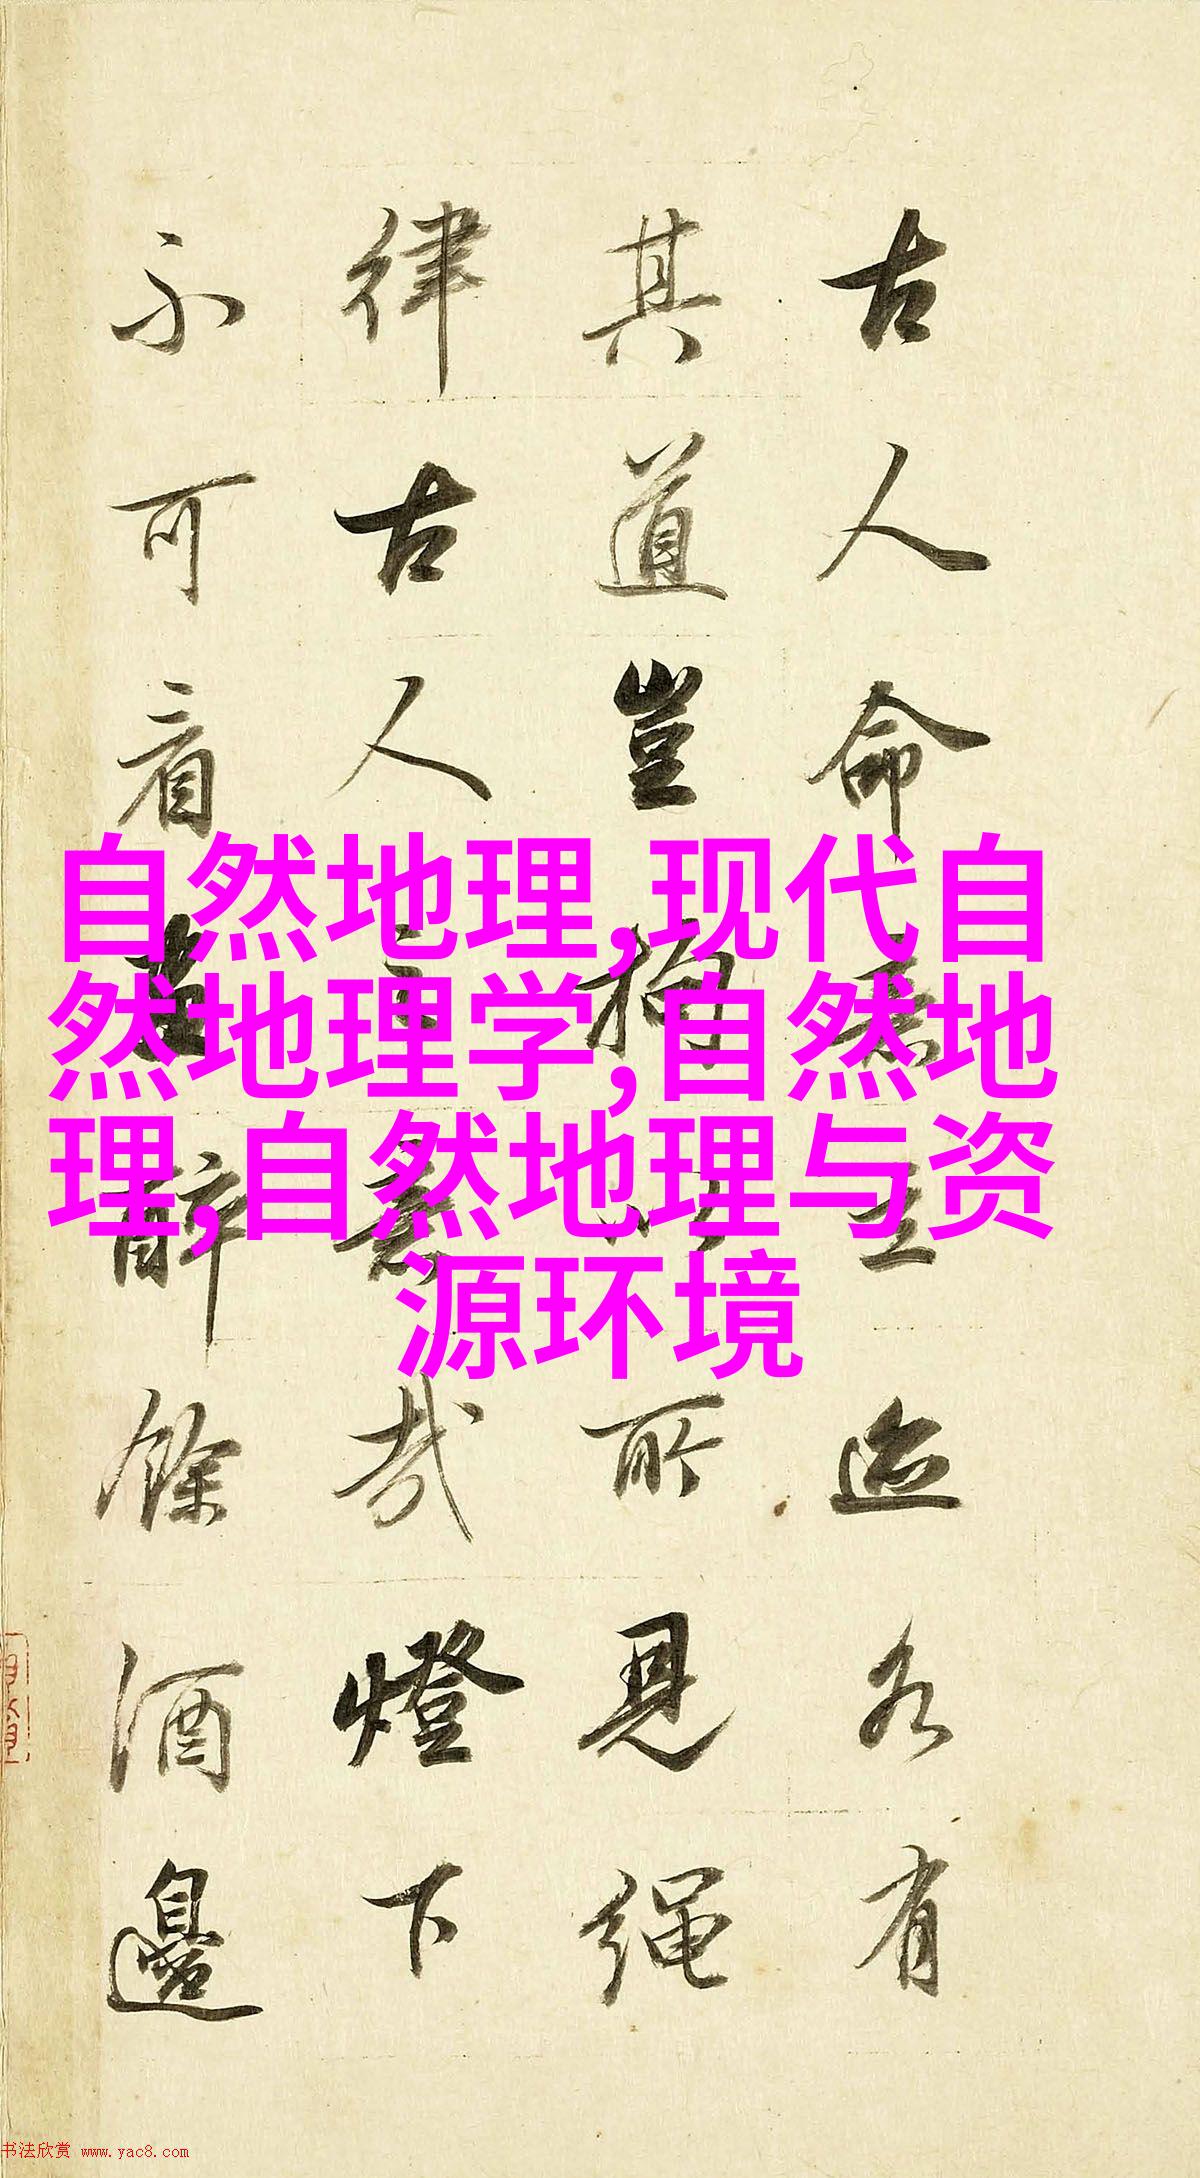 自然地理,现代自
然地理学,自然地
理,自然地理与资
源环境
古人命意立迹各有
其道豈拘以所見繩
律古人之意哉燈下
不可看畫醉餘酒邊
书法欣赏 www.yac8.com